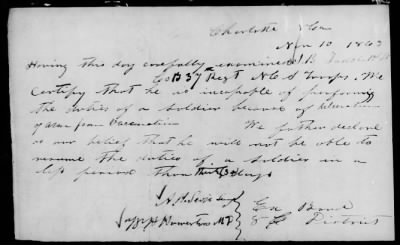 Charlotte N C
Nov 10, 1863
Having this day carefully examined J. B.
Co B 37 Regt N C S Troops. We
certify that he is incapable of performing
the duties of a soldier because of ulceration
of arm from vaccination We further declare
as our belief that he will not be able to
resume the duties of a soldier in a
less period than thirty (30) days
Ex Board
8th C District